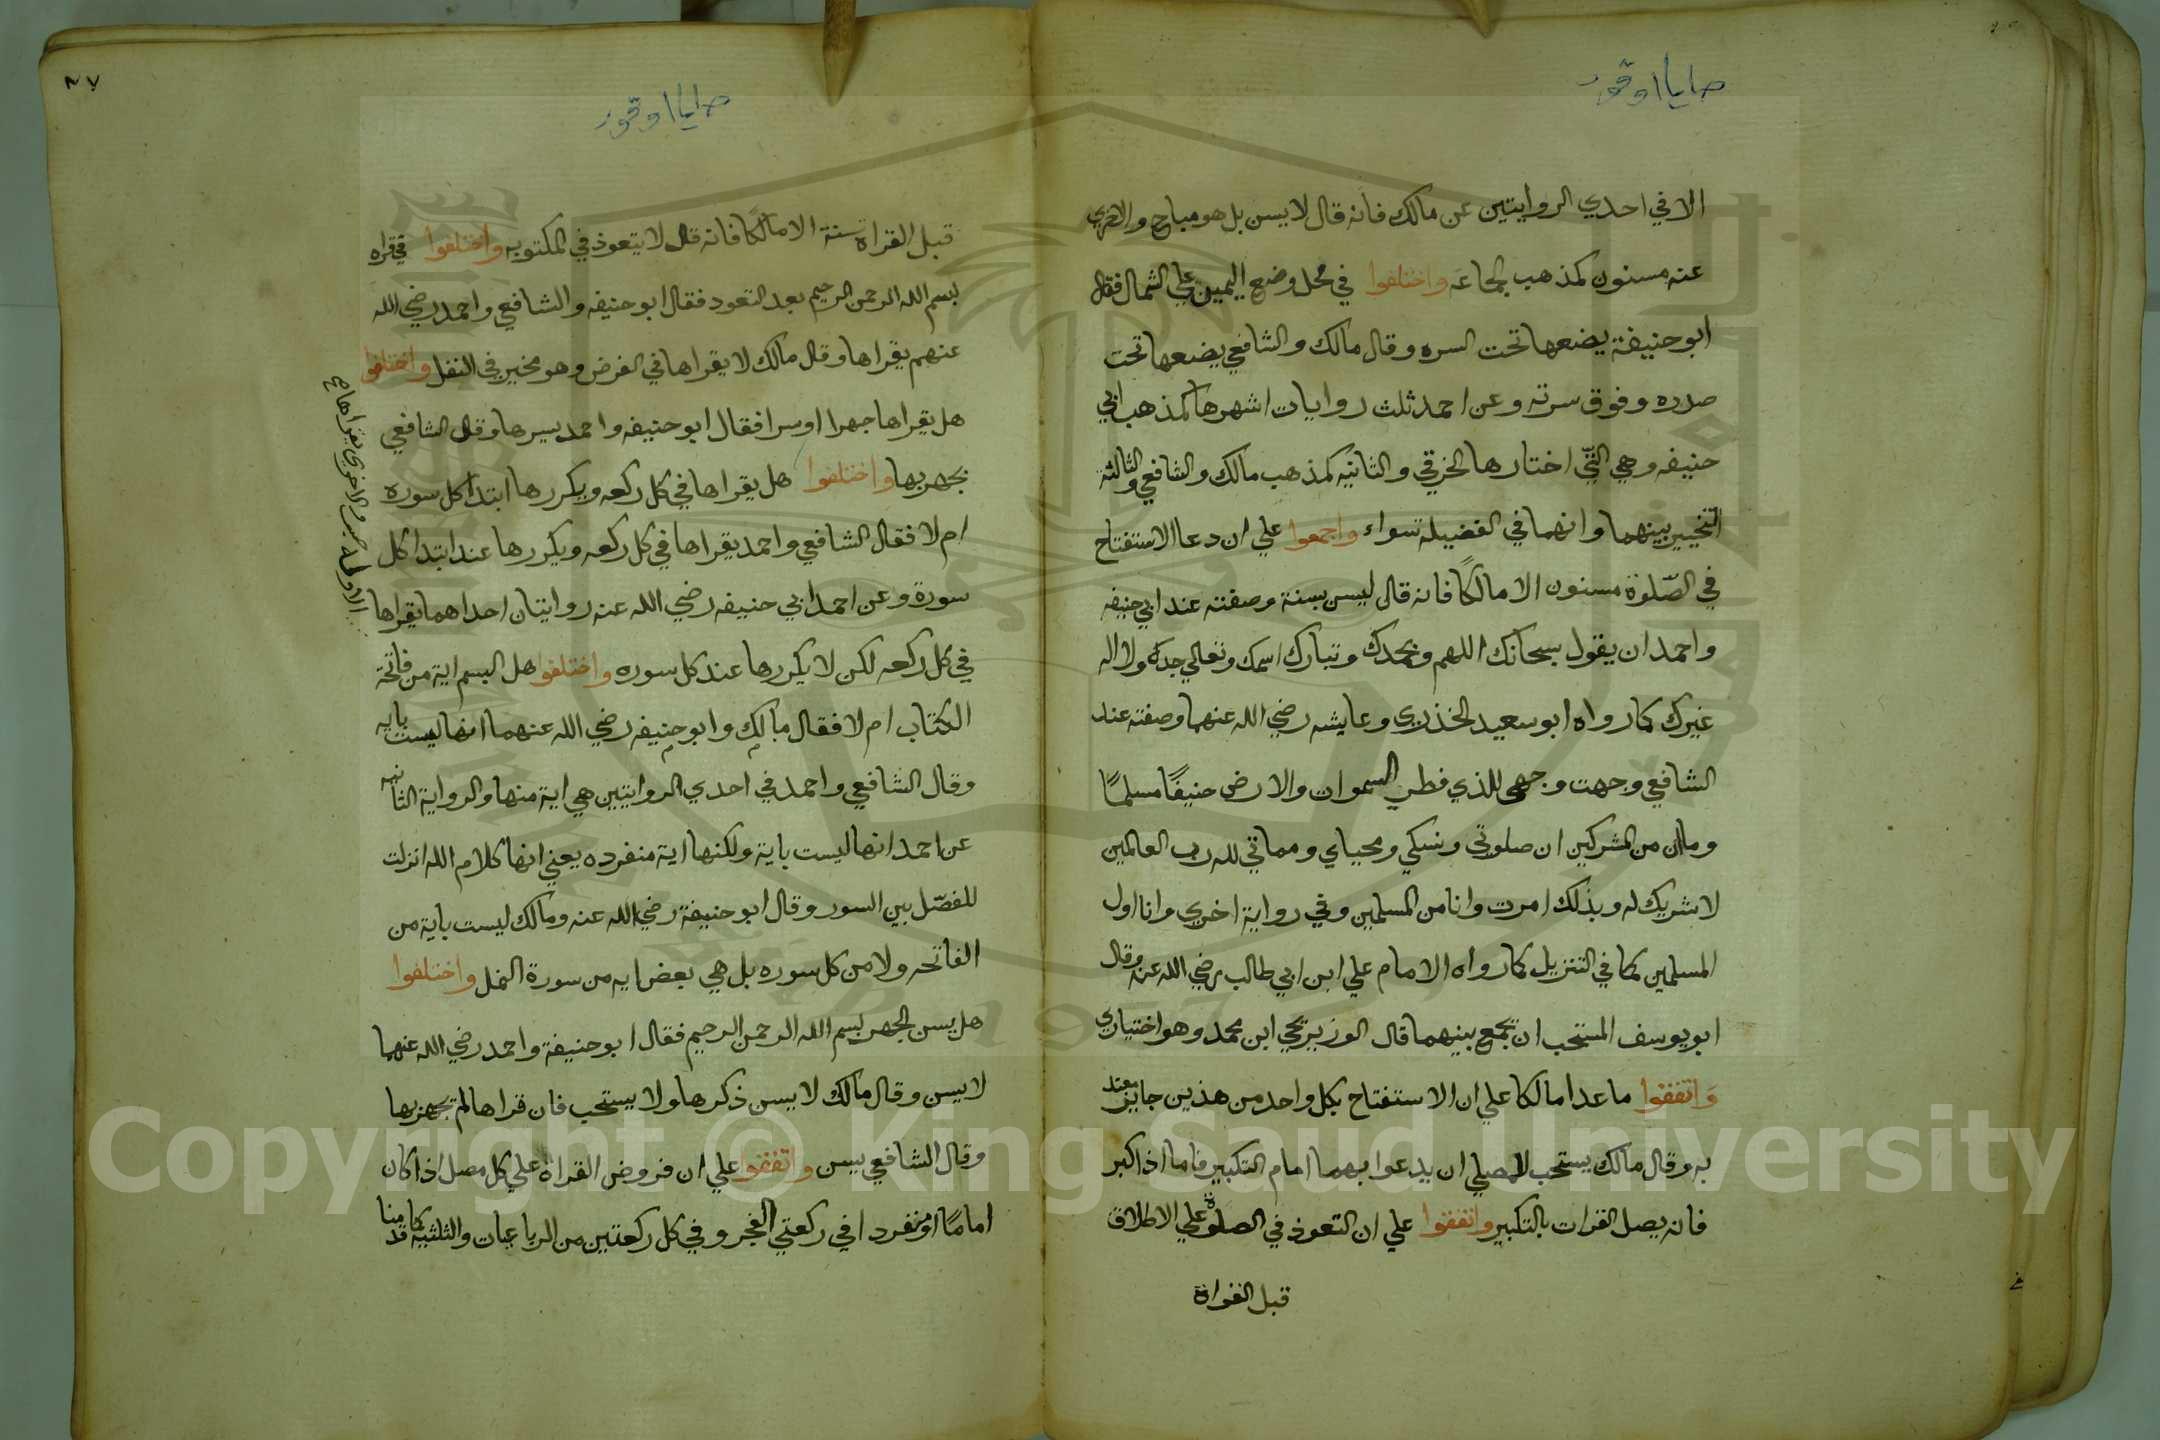 الا في احدي الروايتين عن مالك فانه قال لا يسن بل هو مباح والاخري
عنه مسنون كمذهب الجماعه واختلفوا في محل وضع اليمين علي الشمال فقال
ابو حنيفة يضعها تحت السره وقال مالك والشافعي يضعها تحت
صدره وفوق سرته وعن احمد ثلث روايات اشهرها كمذهب ابي
حنيفه وهي التي اختارها الخرقي والثانيه كمذهب مالك والشافعي والثالثة
التخيير بينهما وانهما في الفضيلة سواء واجمعوا علي ان دعا الاستفتاح
في الصّلوة مسنون الا مالكًا فانه قال ليس بسنة وصفته عند ابي حنيفه
واحمد ان يقول سبحانك اللهم وبحمدك وتبارك اسمك وتعالي جدك ولا اله
غيرك كما رواه ابو سعيد الخذري وعايشه رضي الله عنهما وصفته عند
الشافعي وجهت وجهي للذي فطر السموات والارض حنيفًا مسلمًا
وما انا من المشركين ان صلوتي ونسكي ومحياي ومماتي لله رب العالمين
لا شريك له وبذلك امرت وانا من المسلمين وفي رواية اخري وانا اول
المسلمين كما في التنزيل كما رواه الامام علي ابن ابي طالب رضي الله عنه وقال
ابو يوسف المستحب ان تجمع بينهما قال الوزير يحي ابن محمد وهو اختياري
واتفقوا ما عدا مالكا علي ان الاستفتاح بكل واحد من هذين جايز يعتد
به وقال مالك يستحب للمصلي ان يدعوا بهما امام التكبير فاما اذا كبر
فانه يصل القرات بالتكبير واتفقوا علي ان التعوذ في الصلوة علي الاطلاق
قبل القراة
٨٧
قبل القراة سنة الا مالكًا فانه قال لا يتعوذ في المكتوبه واختلفوا في قراه
بسم الله الرحمن الرحيم بعد التعود فقال ابو حنيفه والشافعي واحمد رضي الله
عنهم يقراها وقال مالك لا يقراها في الفرض وهو مخير في النفل واختلفوا
هل يقراها جهرا او سرا فقال ابو حنيفه واحمد يسرها وقال الشافعي
يجهر بها واختلفوا هل يقراها في كل ركعه ويكررها ابتدا كل سوره
ام لا فقال الشافعي واحمد يقراها في كل ركعه ويكررها عند ابتدا كل
سورة وعن احمد ابي حنيفه رضي الله عنه روايتان احداهما يقراها
في كل ركعه لكن لا يكررها عند كل سوره واختلفوا هل البسم اية من فاتحة
الكتاب ام لا فقال مالك وابو حنيفه رضي الله عنهما انها ليست بايه
وقال الشافعي واحمد في احدي الروايتين هي اية منها والرواية الثانيه
عن احمد انها ليست باية ولكنها اية منفرده يعني انها كلام الله انزلت
للفصّل بين السور وقال ابو حنيفة رضي الله عنه ومالك ليست باية من
الفاتحه ولا من كل سوره بل هي بعض ايه من سورة النمل واختلفوا
هل يسن الجهر ببسم الله الرحمن الرحيم فقال ابو حنيفة واحمد رضي الله عنهما
لا يسن وقال مالك لا يسن ذكرها ولا يستحب فان قراها لم يجهر بها
وقال الشافعي يسن واتفقوا علي ان فروض القراة علي كل مصل اذا كان
امامًا او منفردا في ركعتي الفجر وفي كل ركعتين من الرباعيات والثلثيه كما قدمنا
Copyright © King Saud University